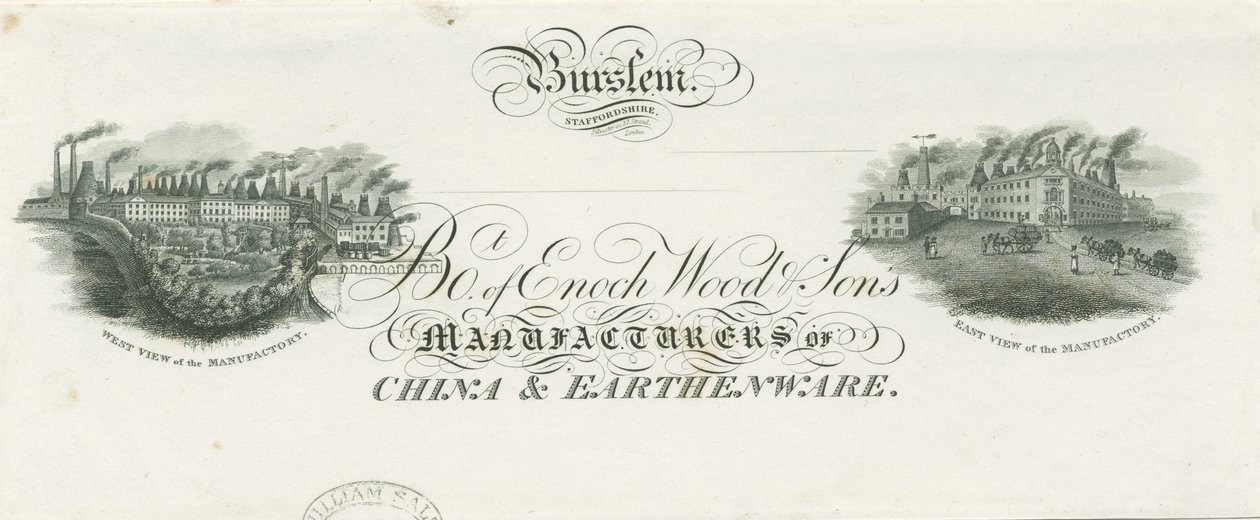 Burslem.
STAFFORDSHIRE.
Strand,
London.
Bo.t of Enoch Wood & Sons
MANUFACTURERS OF
CHINA & EARTHENWARE.
WEST VIEW of the MANUFACTORY.
EAST VIEW of the MANUFACTORY.
WILLIAM SAL